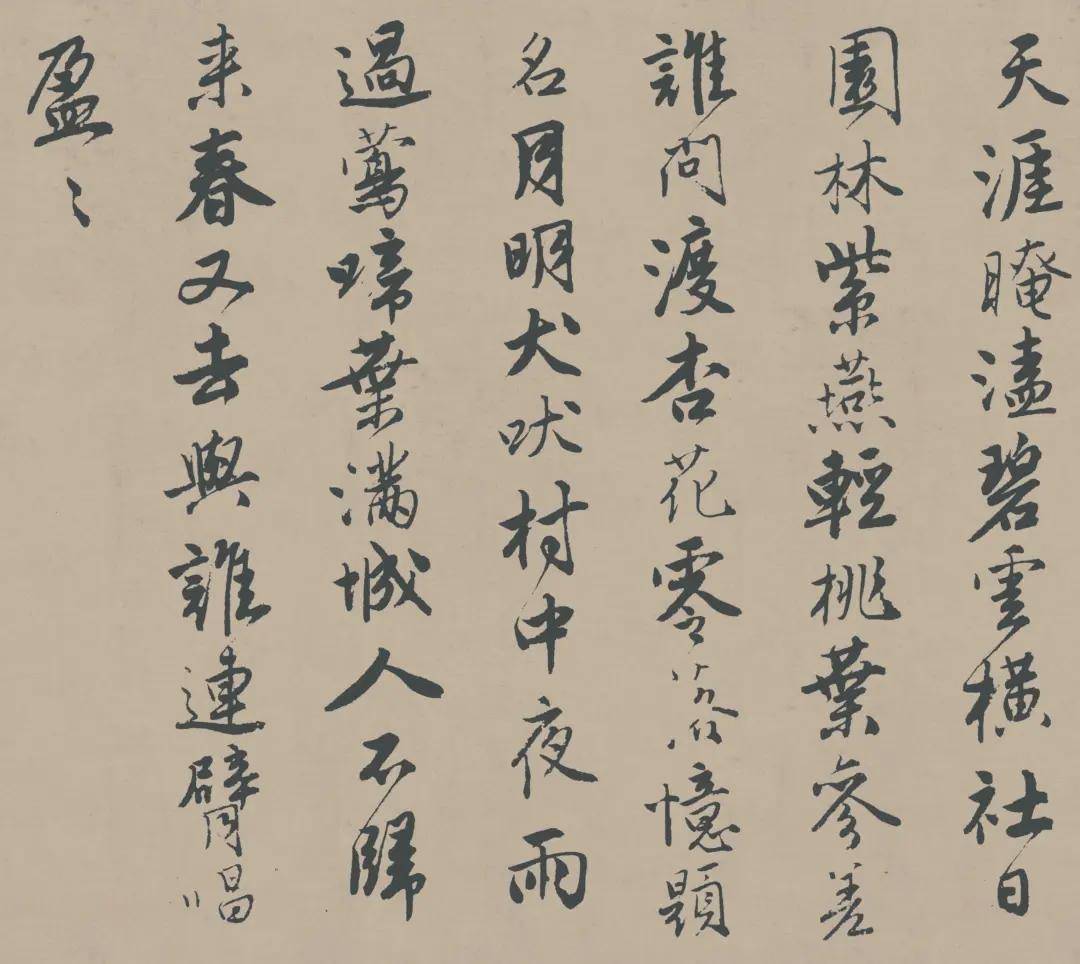 天涯晻溘碧雲橫社日
園林紫燕輕桃葉參差
誰問渡杏花零落憶題
名月明犬吠村中夜雨
過鶯啼葉滿城人不歸
来春又去與誰連臂唱
盈〻